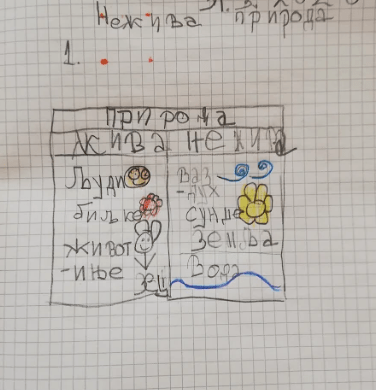 Нежива природа
1.
Природа
Жива Нежива
Људи Ваз-
биљке -дух
сунце
живот- Земља
-иње Вода
зец